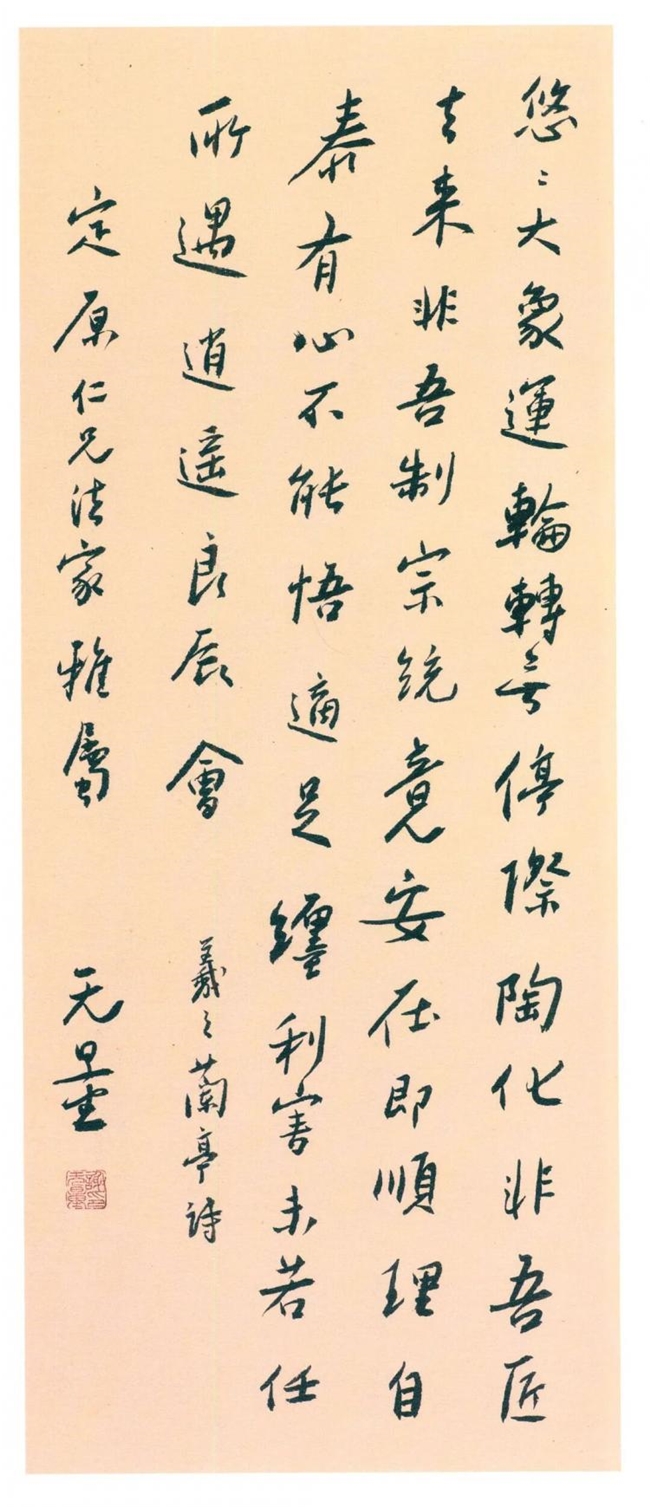 悠〻大象運輪轉无停際陶化非吾匠
去来非吾制宗統竟安在即順理自
泰有心不能悟適足纏利害未若任
所遇逍遥良辰會 羲之蘭亭詩
定原仁兄法家雅屬 无量